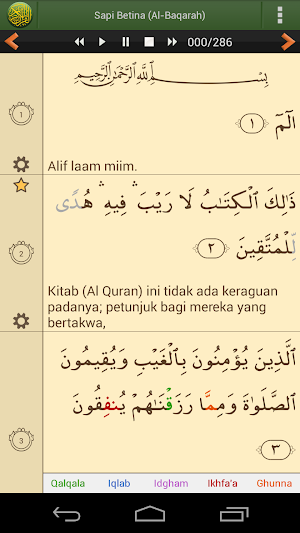 Sapi Betina (Al-Baqarah)
000/286
بِسْمِ ٱللَّهِ ٱلرَّحْمَٰنِ ٱلرَّحِيمِ
1
الٓمٓ ١
Alif laam miim.
ذَٰلِكَ ٱلْكِتَابُ لَا رَيْبَ ۛ فِيهِ ۛ هُدًى
2
لِّلْمُتَّقِينَ ٢
Kitab (Al Quran) ini tidak ada keraguan
padanya; petunjuk bagi mereka yang
bertakwa,
ٱلَّذِينَ يُؤْمِنُونَ بِٱلْغَيْبِ وَيُقِيمُونَ
ٱلصَّلَوٰةَ وَمِمَّا رَزَقْنَاهُمْ يُنفِقُونَ
3
٣
Qalqala Iqlab Idgham Ikhfa'a Ghunna